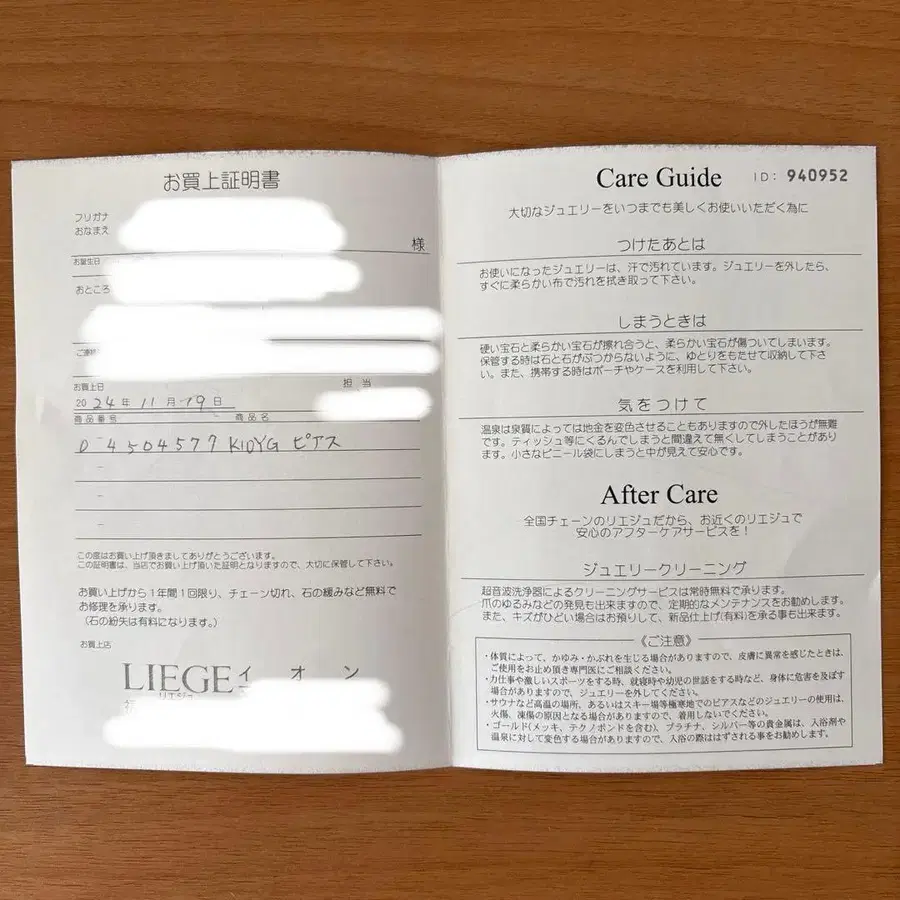 お買上証明書
フリガナ
おなまえ
様
お誕生日
おところ
お買上日
担当
2024年11月19日
商品番号 商品名
D-4504577 K10YG ピアス
この度はお買い上げ頂きましてありがとうございます。
この証明書は、当店でお買い上げ頂いた証明となりますので、大切に保管して下さい。
お買い上げから1年間1回限り、チェーン切れ、石の緩みなど無料で
お修理を承ります。
(石の紛失は有料になります。)
お買上店
LIEGE イオン
Care Guide ID: 940952
大切なジュエリーをいつまでも美しくお使いいただく為に
つけたあとは
お使いになったジュエリーは、汗で汚れています。ジュエリーを外したら、
すぐに柔らかい布で汚れを拭き取って下さい。
しまうときは
硬い宝石と柔らかい宝石が擦れ合うと、柔らかい宝石が傷ついてしまいます。
保管する時は石と石がぶつからないように、ゆとりをもたせて収納して下さ
い。また、携帯する時はポーチやケースを利用して下さい。
気をつけて
温泉は泉質によっては地金を変色させることもありますので外したほうが無難
です。ティッシュ等にくるんでしまうと間違えて無くしてしまうことがあり
ます。小さなビニール袋にしまうと中が見えて安心です。
After Care
全国チェーンのリエジュだから、お近くのリエジュで
安心のアフターケアサービスを!
ジュエリークリーニング
超音波洗浄器によるクリーニングサービスは常時無料で承ります。
爪のゆるみなどの発見も出来ますので、定期的なメンテナンスをお勧めします。
また、キズがひどい場合はお預りして、新品仕上げ(有料)を承る事も出来ます。
《ご注意》
・体質によって、かゆみ・かぶれを生じる場合がありますので、皮膚に異常を感じたときは、
ご使用をお止め頂き専門医にご相談ください。
・力仕事や激しいスポーツをする時、就寝時や幼児の世話をする時など、身体に危害を及ぼす
場合がありますので、ジュエリーを外してください。
・サウナなど高温の場所、あるいはスキー場等極寒地でのピアスなどのジュエリーの使用は、
火傷、凍傷の原因となる場合がありますので、着用しないでください。
・ゴールド(メッキ、テクノボンドを含む)、プラチナ、シルバー等の貴金属は、入浴剤や
温泉に対して変色する場合がありますので、入浴の際ははずされる事をお勧めします。